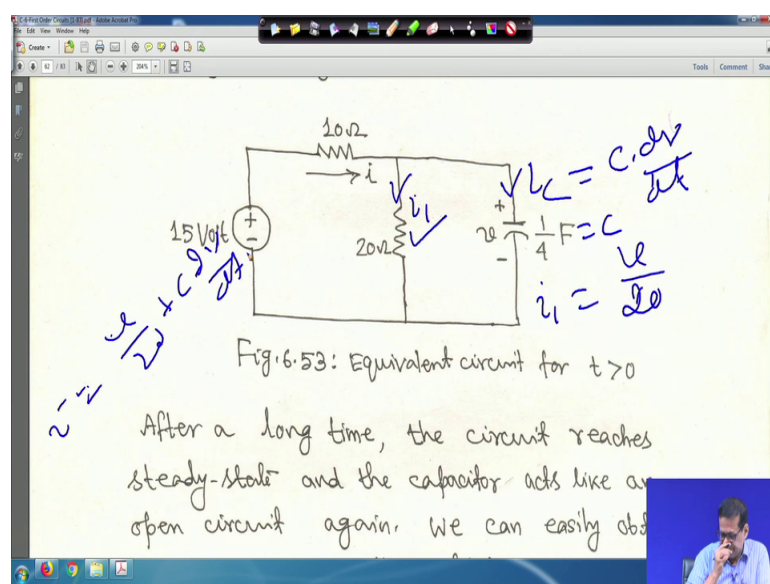 C-6-First Order Circuits [1-83].pdf - Adobe Acrobat Pro
File Edit View Window Help
Create
62 / 83
204%
Tools Comment Sha
10Ω
i
15 Volt
+
-
20Ω
i₁
v
+
-
1/4 F = C
i_C = C. dv/dt
i₁ = v/20
i = v/20 + C dv/dt
Fig. 6.53: Equivalent circuit for t > 0
After a long time, the circuit reaches
steady-state and the capacitor acts like an
open circuit again. We can easily obt